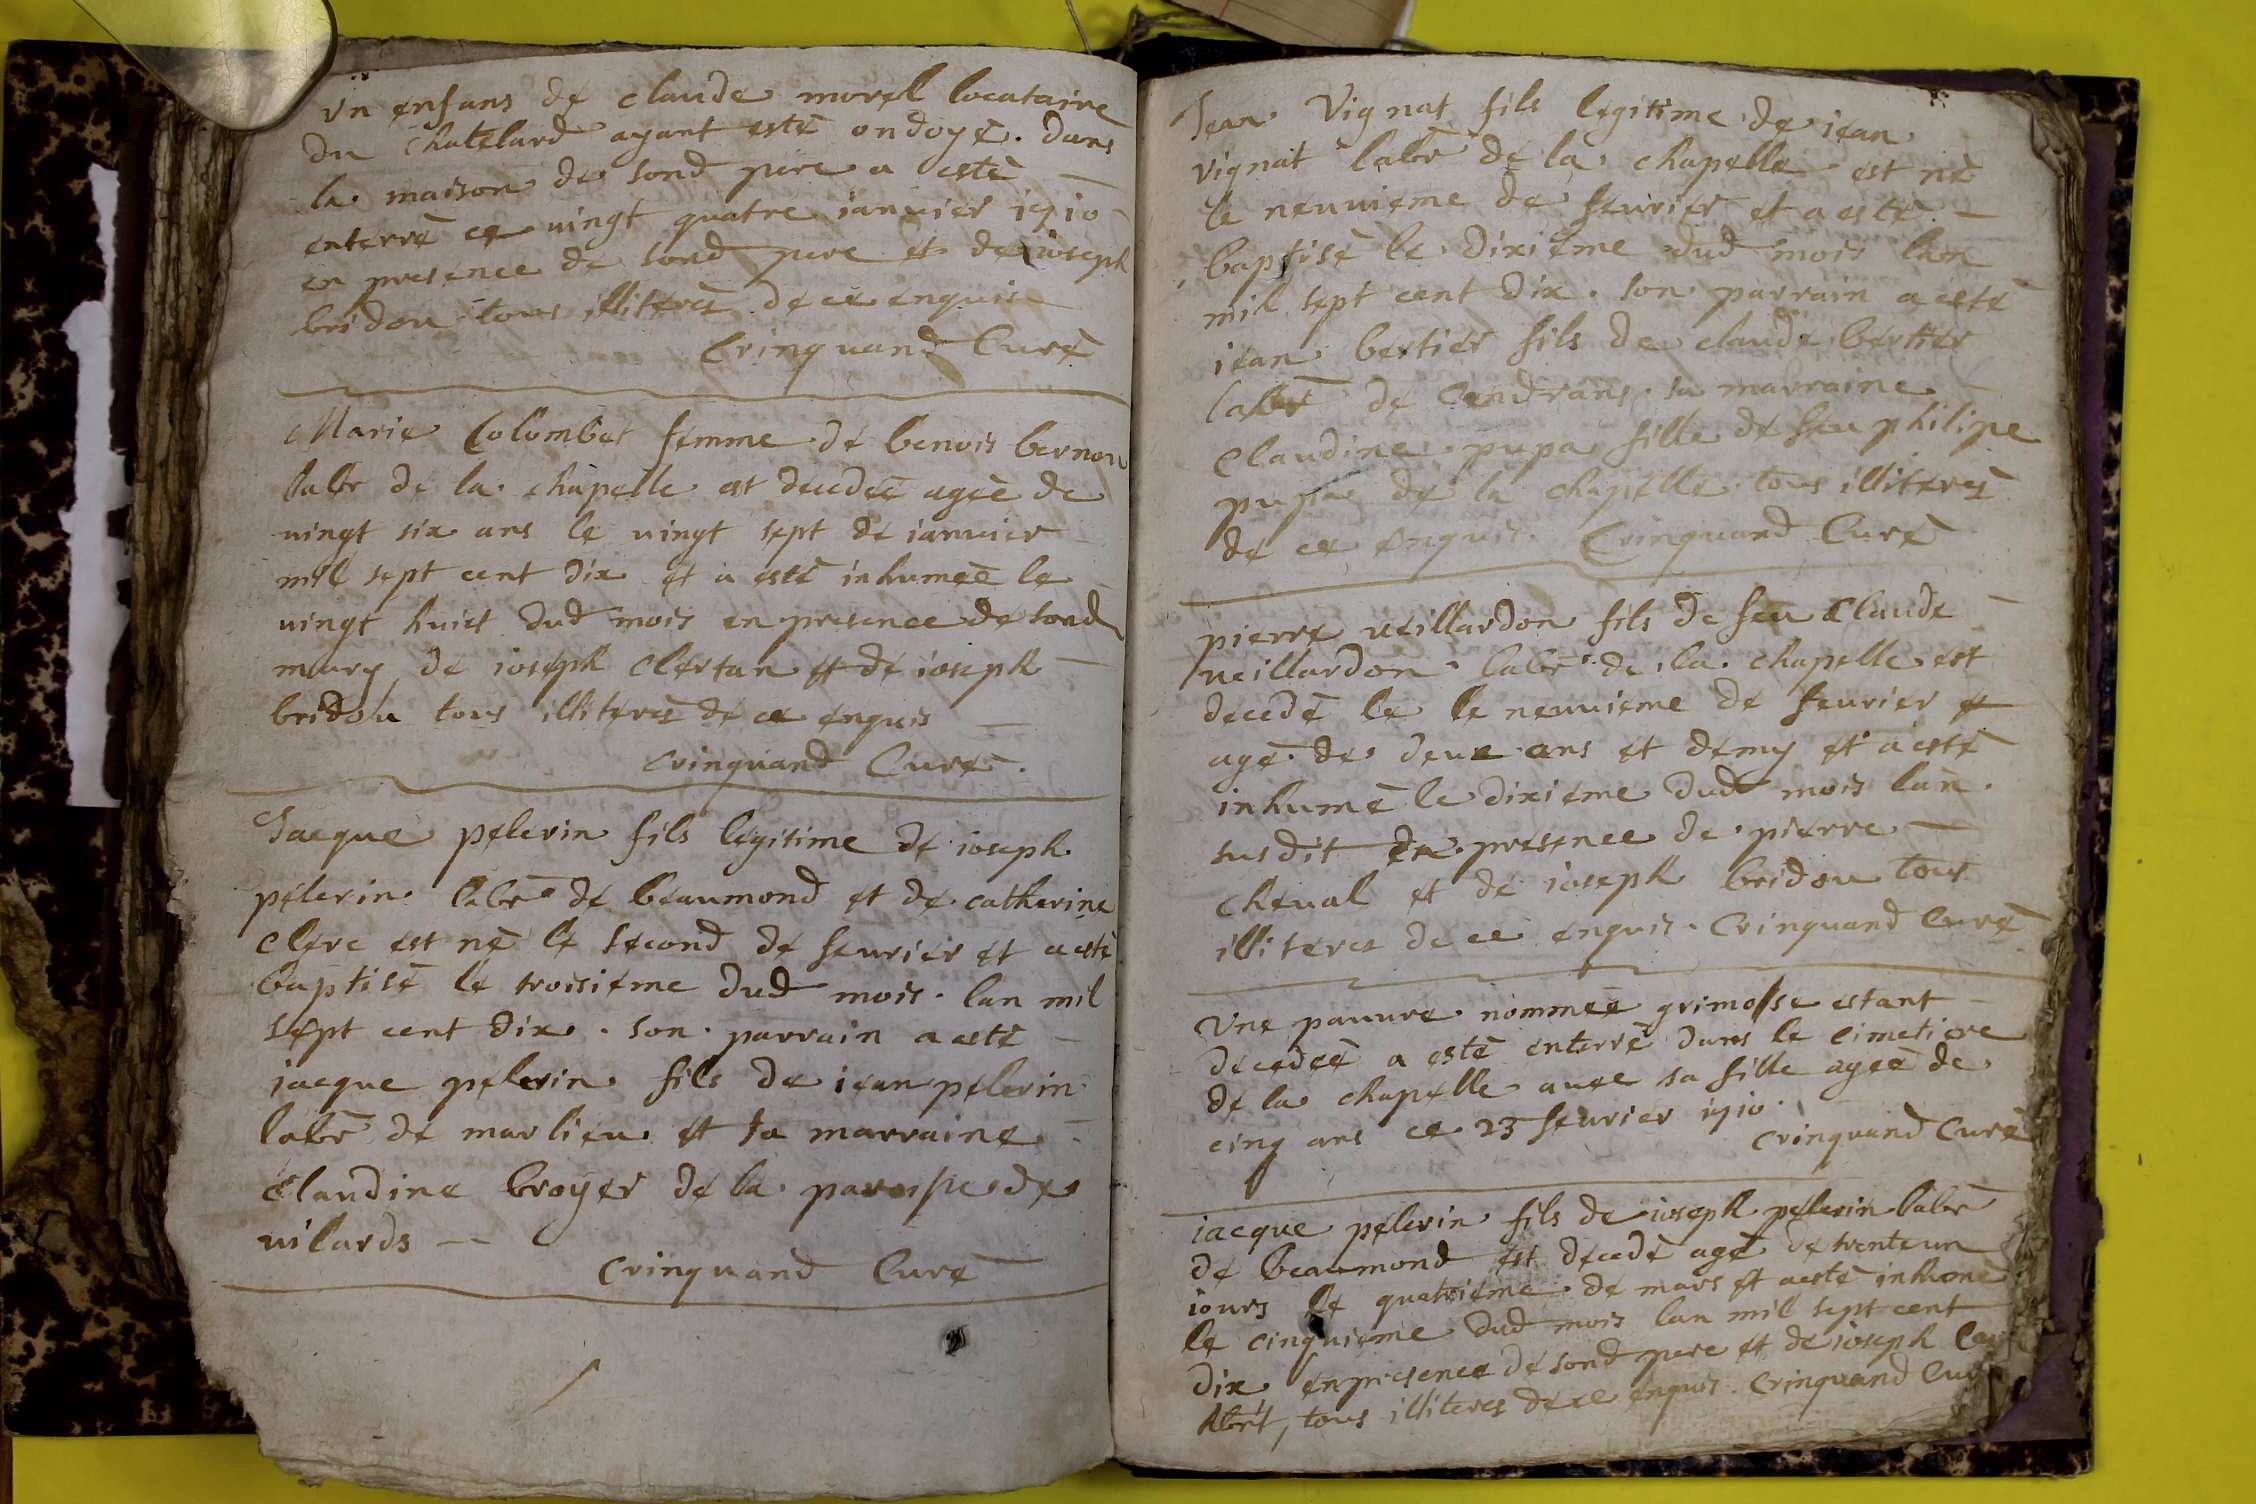 un enfans de claude morel locataire
du chatelard ayant esté ondoyé. dans
la maison de sond pere a esté
enterré ce vingt quatre ianvier 1710
en presence de sond pere et de ioseph
bridou tous illiteres de ce enquis
Crinquand Curé
Marie Colombet femme de benois bernou
labr de la chapelle est decedeé ageé de
vingt six ans le vingt sept de ianvier
mil sept cent dix et a esté inhumeé le
vingt huict dud mois en presence de sond
mary de ioseph clertan et de ioseph
bridou tous illiteres de ce enquis
Crinquand Curé.
Jacque pelerin fils legitime de ioseph
pelerin labr de beaumond et de catherine
clerc est né le second de feurier et a esté
baptisé le troisiéme dud mois. lan mil
sept cent dix. son parrain a esté
iacque pelerin fils de iean pelerin
labr de marlieu et sa marraine
Claudine broyer de la paroisse de
vilards
Crinquand Curé
Jean Vignat fils legitime de iean
vignat labr de la chapelle est né
le neuuieme de feurier et a esté
baptisé le dixiéme dud mois lan
mil sept cent dix. son parrain a esté
iean bertier fils de claude bertier
labr de Condrans. sa marraine
Claudine pupa fille de feu philipe
pupa de la chapelle tous illiteres
de ce enquis. Crinquand Curé
pierre veillardon fils de feu Claude
veillardon labr de la chapelle est
decedé le le neuuiéme de feurier et
agé de deux ans et demy et a esté
inhumé le dixiéme dud mois lan
susdit en presence de pierre
cheual et de ioseph bridou tous
illiteres de ce enquis. Crinquand Curé
Une pauure nommeé grimosse estant
decedeé a esté enterré dans le cimetiere
de la chapelle auec sa fille ageé de
cinq ans ce 23 feurier 1710.
Crinquand Curé
iacque pelerin fils de ioseph pelerin labr
de beaumond est decedé agé de trente un
iours le quatriéme de mars et a esté inhumé
le cinquiéme dud mois lan mil sept cent
dix en presence de sond pere et de ioseph
tous illiteres de ce enquis Crinquand Curé